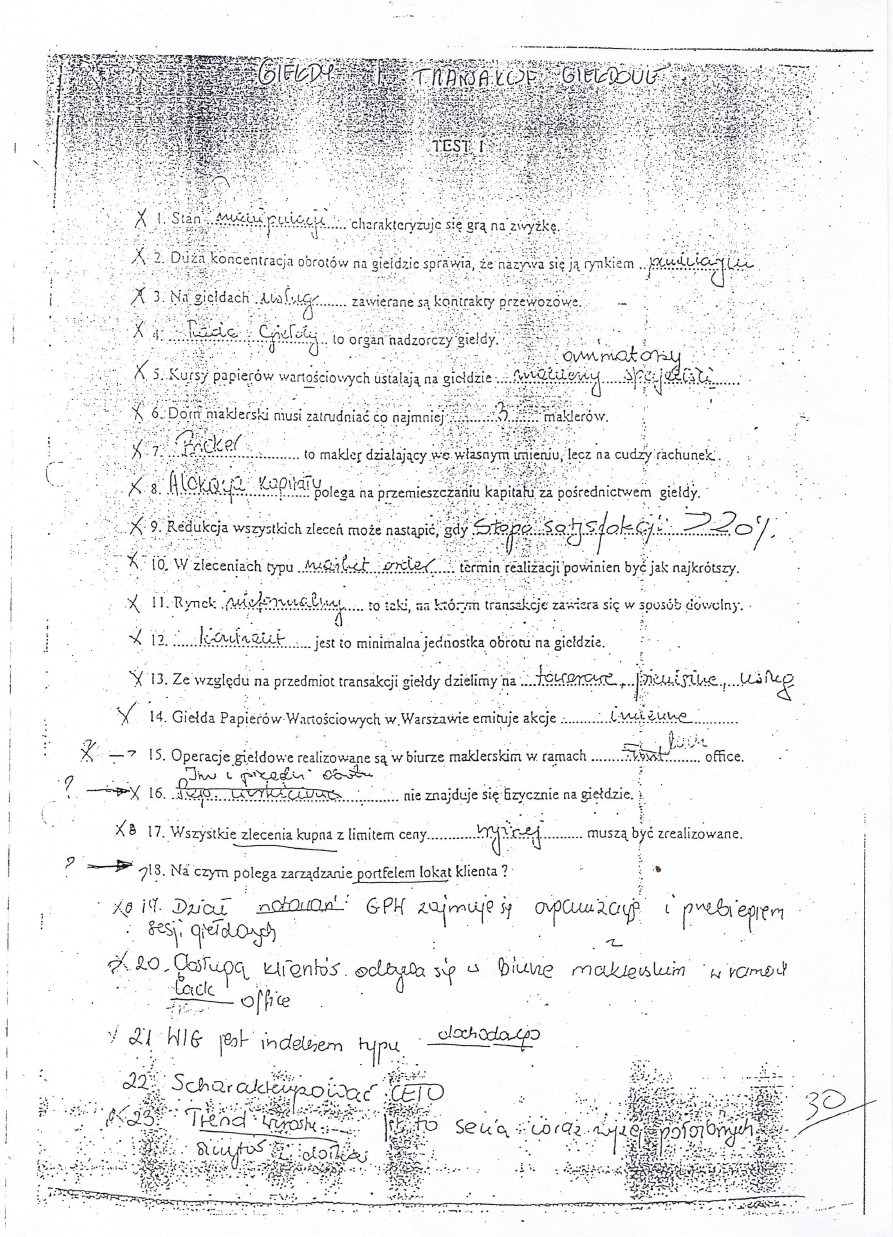 GIEŁDY I TRANSAKCJE GIEŁDOWE
TEST I
X 1. Stan ........ charakteryzuje się grą na zwyżkę.
X 2. Duża koncentracja obrotów na giełdzie sprawia, że nazywa się ją rynkiem ..
X 3. Na giełdach usług zawierane są kontrakty przewozowe.
X 4. Rada Giełdy to organ nadzorczy giełdy.
animatorzy
X 5. Kursy papierów wartościowych ustalają na giełdzie specjaliści
X 6. Dom maklerski musi zatrudniać co najmniej 3 maklerów.
X 7. Broker to makler działający we własnym imieniu, lecz na cudzy rachunek.
X 8. Alokacja kapitału polega na przemieszczaniu kapitału za pośrednictwem giełdy.
X 9. Redukcja wszystkich zleceń może nastąpić, gdy stopa satysfakcji
X 10. W zleceniach typu market order termin realizacji powinien być jak najkrótszy.
X 11. Rynek nieformalny to taki, na którym transakcje zawiera się w sposób dowolny.
X 12. kontrakt jest to minimalna jednostka obrotu na giełdzie.
X 13. Ze względu na przedmiot transakcji giełdy dzielimy na towarowe, pieniężne, usług
X 14. Giełda Papierów Wartościowych w Warszawie emituje akcje imienne
X → 15. Operacje giełdowe realizowane są w biurze maklerskim w ramach front office.
? → X 16. ........ nie znajduje się fizycznie na giełdzie.
X 17. Wszystkie zlecenia kupna z limitem ceny wyższej muszą być zrealizowane.
? → 18. Na czym polega zarządzanie portfelem lokat klienta ?
X 19. Dział notowań GPW zajmuje się organizacją i przebiegiem
sesji giełdowych
X 20. Obsługa klientów odbywa się w biurze maklerskim w ramach
back office
21 WIG jest indeksem typu dochodowego
22. Scharakteryzować CETO
X 23. Trend wzrostu jest to seria coraz wyżej położonych
szczytów i dołków
30